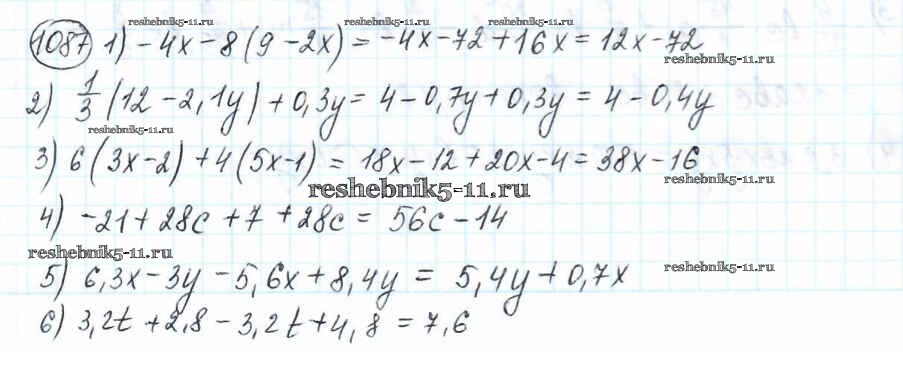 reshebnik5-11.ru reshebnik5-11.ru reshebnik5-11.ru
1087 1) -4x-8(9-2x)=-4x-72+16x=12x-72
reshebnik5-11.ru
2) 1/3(12-2,1y)+0,3y=4-0,7y+0,3y=4-0,4y
reshebnik5-11.ru
3) 6(3x-2)+4(5x-1)=18x-12+20x-4=38x-16
reshebnik5-11.ru reshebnik5-11.ru
4) -21+28c+7+28c=56c-14
reshebnik5-11.ru
5) 6,3x-3y-5,6x+8,4y=5,4y+0,7x
reshebnik5-11.ru
6) 3,2t+2,8-3,2t+4,8=7,6